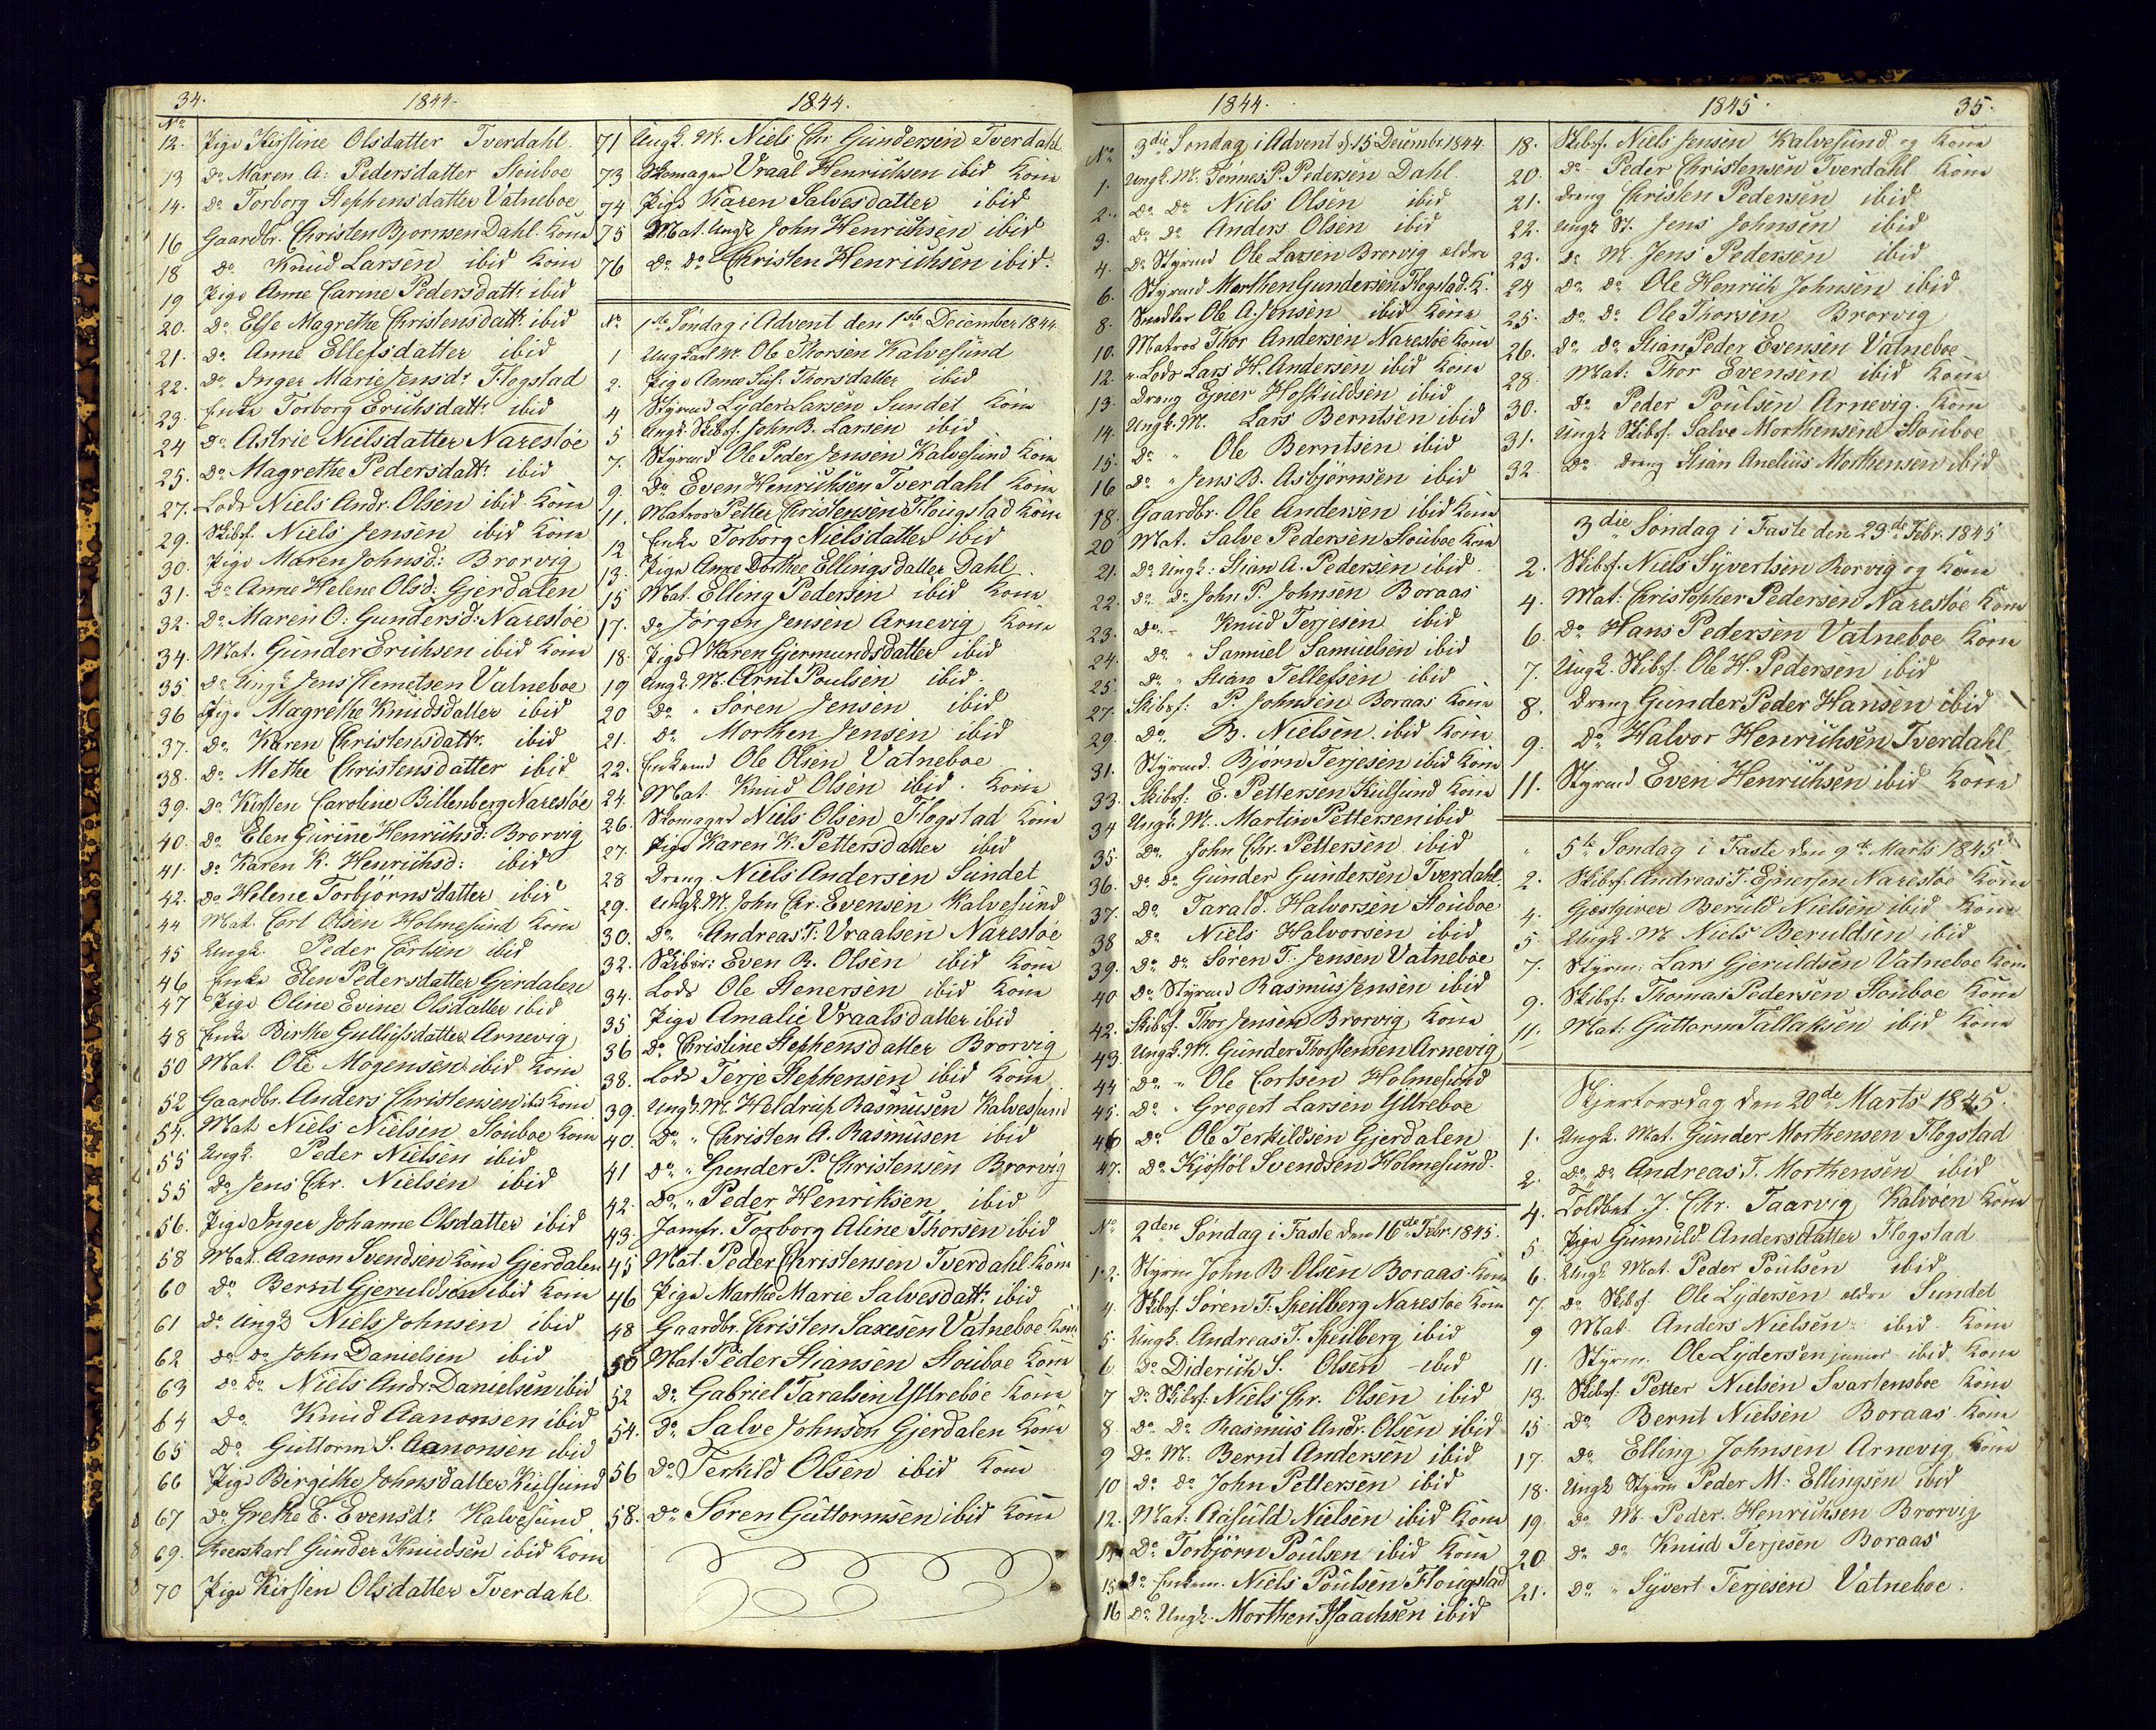 34.
1844.
No
12. Pige Kirstine Olsdatter Tverdahl
13 Do Maren A: Pedersdatter Stouboe
14. Do Torborg Stephensdatter Vatneboe
16 Gaardbr. Christen Bjornsen Dahl. Kone
18 do. Knud Larsen ibid Kone
19 Pige Anne Carine Pedersdattr ibid
20. Do Else Magrethe Christensdattr ibid
21. Do Anne Ellefsdatter ibid
22. Do Inger Marie Jensdr Flogstad
23. Enke Torborg Erichsdattr ibid
24 Do Astrie Nielsdatter Narestöe
25. Do Magrethe Pedersdattr ibid
27. Lods Niels Andr. Olsen ibid Kone
29. Skibsf. Niels Jensen ibid Kone
30. Pige Maren Johnsd: Brorvig
31. Do Anne Helene Olsd: Gjerdalen
32. Do Maren O: Gundersd: Narestöe
34. Mat. Gunder Erichsen ibid Kone
35. Do Ungk Jens Clemetsen Vatneboe
36 Pige Magrethe Knudsdatter ibid
37. Do Karen Christensdattr ibid
38. Do Methe Christensdatter ibid
39. Do Kirsten Caroline Billenberg Narestöe
40. Do Elen Gurine Henrichsd: Brorvig
41. do Karen K. Henrichsd: ibid
42. do Helene Torbjörnsdatter ibid
44 Mat. Corl Olsen Holmesund Kone
45 Ungk. Peder Corlsen ibid
46 Enke Elen Pedersdatter Gjerdalen
47 Pige Oline Evine Olsdatter ibid
48 Enke Birthe Gulligsdatter Arnevig
50 Mat. Ole Mogensen ibid Kone
52 Gaardbr. Anders Christensen ibid Kone
54. Mat Niels Nielsen Stouboe Kone
55 Ungk. Peder Nielsen ibid
55 Do Jens Chr. Nielsen ibid
56. Pige Inger Johanne Olsdatter ibid
58 Mat. Aanon Svendsen Kone Gjerdalen
60 do Bernt Gjeruldsen ibid Kone
61 do Ungk Niels Johnsen ibid
62 do do John Danielsen ibid
63 do do Niels Andr. Danielsen ibid
64 do. Knud Aanonsen ibid
65 do Guttorm S. Aanonsen ibid
66 Pige Birgithe Johnsdatter Kiilsund
67 Do Grethe E. Evensdr Kalvesund
69. Gunder Knudsen ibid Kone
70 Pige Kirsten Olsdatter Tverdahl
1844.
71 Ungk. M. Niels Chr Gundersen Tverdahl
73 Skomager Vraal Henrichsen ibid Kone
74 Pige Karen Salvesdatter ibid
75 Mat. Ungk John Henrichsen ibid
76 do do Christen Henrichsen ibid.
No 1ste Søndag i Advent den 1ste December 1844.
1 Ungkarl M. Ole Thorsen Kalvesund
2. Pige Anne Sus: Thorsdatter ibid
4 Styrmd Lyder Larsen Sundet Kone
5 Ungk. Skibsf. John B. Larsen ibid
7. Styrmd Ole Peder Jensen Kalvesund Kone
9. Do Even Henrichsen Tverdahl Kone
11. Matros Petter Christensen Flougstad Kone
12 Enke Torborg Nielsdatter ibid
13. Pige Anne Dorthee Ellingsdatter Dahl
15 Mat. Elling Pedersen ibid Kone
17. do Jörgen Jensen Arnevig Kone
18. Pige Karen Gjermundsdatter ibid
19 Ungk. M: Arnt Poulsen ibid.
20 Do " Søren Jensen ibid
21. Do Morthen Jensen ibid
22. Enkemd Ole Olsen Vatneboe
24. Mat. Knud Olsen ibid. Kone
26. Skomager Niels Olsen Flogstad Kone
27. Pige Karen K. Pettersdatter ibid
28 Dreng Niels Andersen Sundet
29. Ungk M. John Chr. Evensen Kalvesund
30. Do. " Andreas T. Vraalsen Narestöe
32. Skibsr: Even R. Olsen ibid Kone
34. Lods Ole Stenersen ibid Kone
35 Pige Amalie Vraalsdatter ibid
36 Do Christine Stephensdatter Brorvig
38. Lods Terje Stephensen ibid Kone
39. Ungk. M. Heldrup Rasmusen Kalvesund
40. Do " Christen A. Rasmusen ibid
41 Do " Gunder P. Christensen Brorvig
42. Do. " Peder Henriksen ibid
43. Jomfr. Torborg Aline Thorsen ibid
45 Mat. Peder Christensen Tverdahl Kone
46 Pige Marthe Marie Salvesdattr ibid
48 Gaardbr. Christen Saxesen Vatneboe Kone
50 Mat. Peder Stiansen Stouboe Kone
52 Do. Gabriel Taralsen Yttreboe Kone
54. Do Salve Johnsen Gjerdalen Kone
56 Do Terkild Olsen ibid Kone
58. Do Søren Guttormsen ibid Kone
1844.
No 3die Søndag i Advent d: 15 Decembr 1844
1. Ungk. M. Tönnes P. Pedersen Dahl
2. Do Do Niels Olsen ibid
3. Do Do Anders Olsen ibid
4. Do Styrmd Ole Larsen Brorvig eldre
6. Styrmd Morthen Gundersen Flogstad. K.
8. Snedker Ole A. Jensen ibid Kone
10. Matros Thor Andersen Narestöe Kone
12. Lods Lars H. Andersen ibid Kone
13. Dreng Ejner Hofkuldsen ibid
14. Ungk. M. Lars Berntsen ibid
15. Do " Ole Berntsen ibid
16 Do " Jens B. Asbjörnsen ibid
18. Gaardbr. Ole Andersen ibid Kone
20 Mat. Salve Pedersen Stouboe Kone
21. Do Ungk: Stian A. Pedersen ibid
22. Do Do John P. Johnsen Boraas
23. Do. - Knud Terjesen ibid
24. Do. " Samuel Samuelsen ibid
25. Do " Stian Tellefsen ibid
27. Skibsf: P. Johnsen Boraas Kone
29. Do. B. Nielsen ibid Kone
31. Styrmd. Bjørn Terjesen ibid Kone
33. Skibsf: E. Pettersen Kiilsund Kone
34 Ungk. M. Martin Pettersen ibid
35. Do. John Chr. Pettersen ibid
36. Do Do Gunder Gundersen Tverdahl
37. Do. Tarald. Halvorsen Stouboe
38 Do Niels Halvorsen ibid
39. Do Do Søren T. Jensen Vatneboe
40 Do Styrmd Rasmus Jensen ibid
42. Skibsf. Thor Jensen Brorvig Kone
43. Ungk. M. Gunder Thorstensen Arnevig
44 Do. " Ole Corlsen Holmesund
45. Do. " Gregert Larsen Yttreboe
46 Do. Ole Terkildsen Gjerdalen
47. Do. Kjöstöl Svendsen Holmesund.
No 2den Søndag i Faste den 16de Febr. 1845.
1-2. Styrm John B. Olsen Boraas Kone
4. Skibsf. Søren T: Speilberg Narestöe Kone
5. Ungk. Andreas T. Speilberg ibid
6 Do Diderich S. Olsen - ibid
7 Do Skibsf. Niels Chr. Olsen ibid
8. Do Do Rasmus Andr. Olsen ibid
9 Do M. Bernt Andersen ibid
10 Do Do John Pettersen ibid
12. Mat. Roskuld Nielsen ibid Kone
14 Do. Torbjörn Poulsen ibid Kone
15 Do Enkem. Niels Poulsen Flougstad
16 Do Ungk. Morthen Isaachsen ibid
1845.
35.
18. Skibsf. Niels Jensen Kalvesund og Kone
20. Do - Peder Christensen Tverdahl Kone
21. Dreng Christen Pedersen ibid
22. Ungk St. Jens Johnsen ibid
23. Do M Jens Pedersen ibid
24 Do. Do. Ole Henrich Johnsen ibid
25. Do. Do. Ole Thorsen Brorvig
26. Do Do Stian Peder Evensen Vatneboe
28. Mat: Thor Evensen ibid Kone
30. Do Peder Poulsen Arnevig. Kone
31. Ungk Skibsf. Salve Morthensen Stouboe
32 Do Dreng Stian Anelius Morthensen ibid
3die Søndag i Faste den 23de Febr. 1845
2. Skibsf. Niels Syvertsen Rorvig og Kone
4. Mat: Christopher Pedersen Narestöe Kone
6. Do Hans Pedersen Vatneboe Kone
7. Ungk. Skibsf. Ole H. Pedersen ibid
8. Dreng Gunder Peder Hansen ibid
9. Do Halvor Henrichsen Tverdahl
11. Styrmd Even Henrichsen ibid Kone
5te Søndag i Faste den 9de Marts 1845
2. Skibsf. Andreas T. Ejnersen Narestöe Kone
4. Gjæstgiver Beruld Nielsen ibid Kone
5. Ungk. M Niels Beruldsen ibid
7. Styrm: Lars Gjeruldsen Vatneboe Kone
9. Skibsf: Thomas Pedersen Stouboe Kone
11. Mat: Guttorm Tallaksen ibid Kone
Skjertorsdag den 20de Marts 1845.
1. Ungk. Mat. Gunder Morthensen Flogstad
2. Do. Do Andreas T. Morthensen ibid
4. Toldbet. J. Chr. Taarvig Kalvøen Kone
5. Pige Gunnild Andersdatter Flogstad
6. Ungk Mat. Peder Poulsen ibid
7. Do Skibsf. Ole Lydersen eldre Sundet
9 Mat. Anders Nielsen ibid Kone
11. Styrm. Ole Lydersen junior ibid Kone
13. Skibsf: Petter Nielsen Svartensboe Kone
15 Do Bernt Nielsen Boraas Kone
17. Do Elling Johnsen Arnevig Kone
18. Ungk Styrm Peder M: Ellingsen ibid
19. Do M. Peder. Henrichsen Brorvig
20. Do Do Knud Terjesen Boraas
21. Do " Syvert Terjesen Vatneboe.